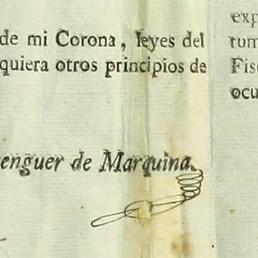 de mi Corona, leyes del
quiera otros principios de
enguer de Marquina.
exp
rum
Fis
ocu